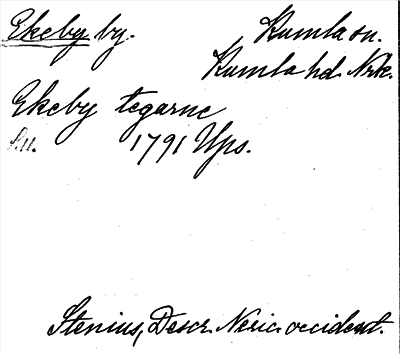 Ekeby by. Kumla sn.
Kumla hd. Nrke.
Ekeby tegarne
1791 Ups.
Stenius, Descr. Neric. occident.